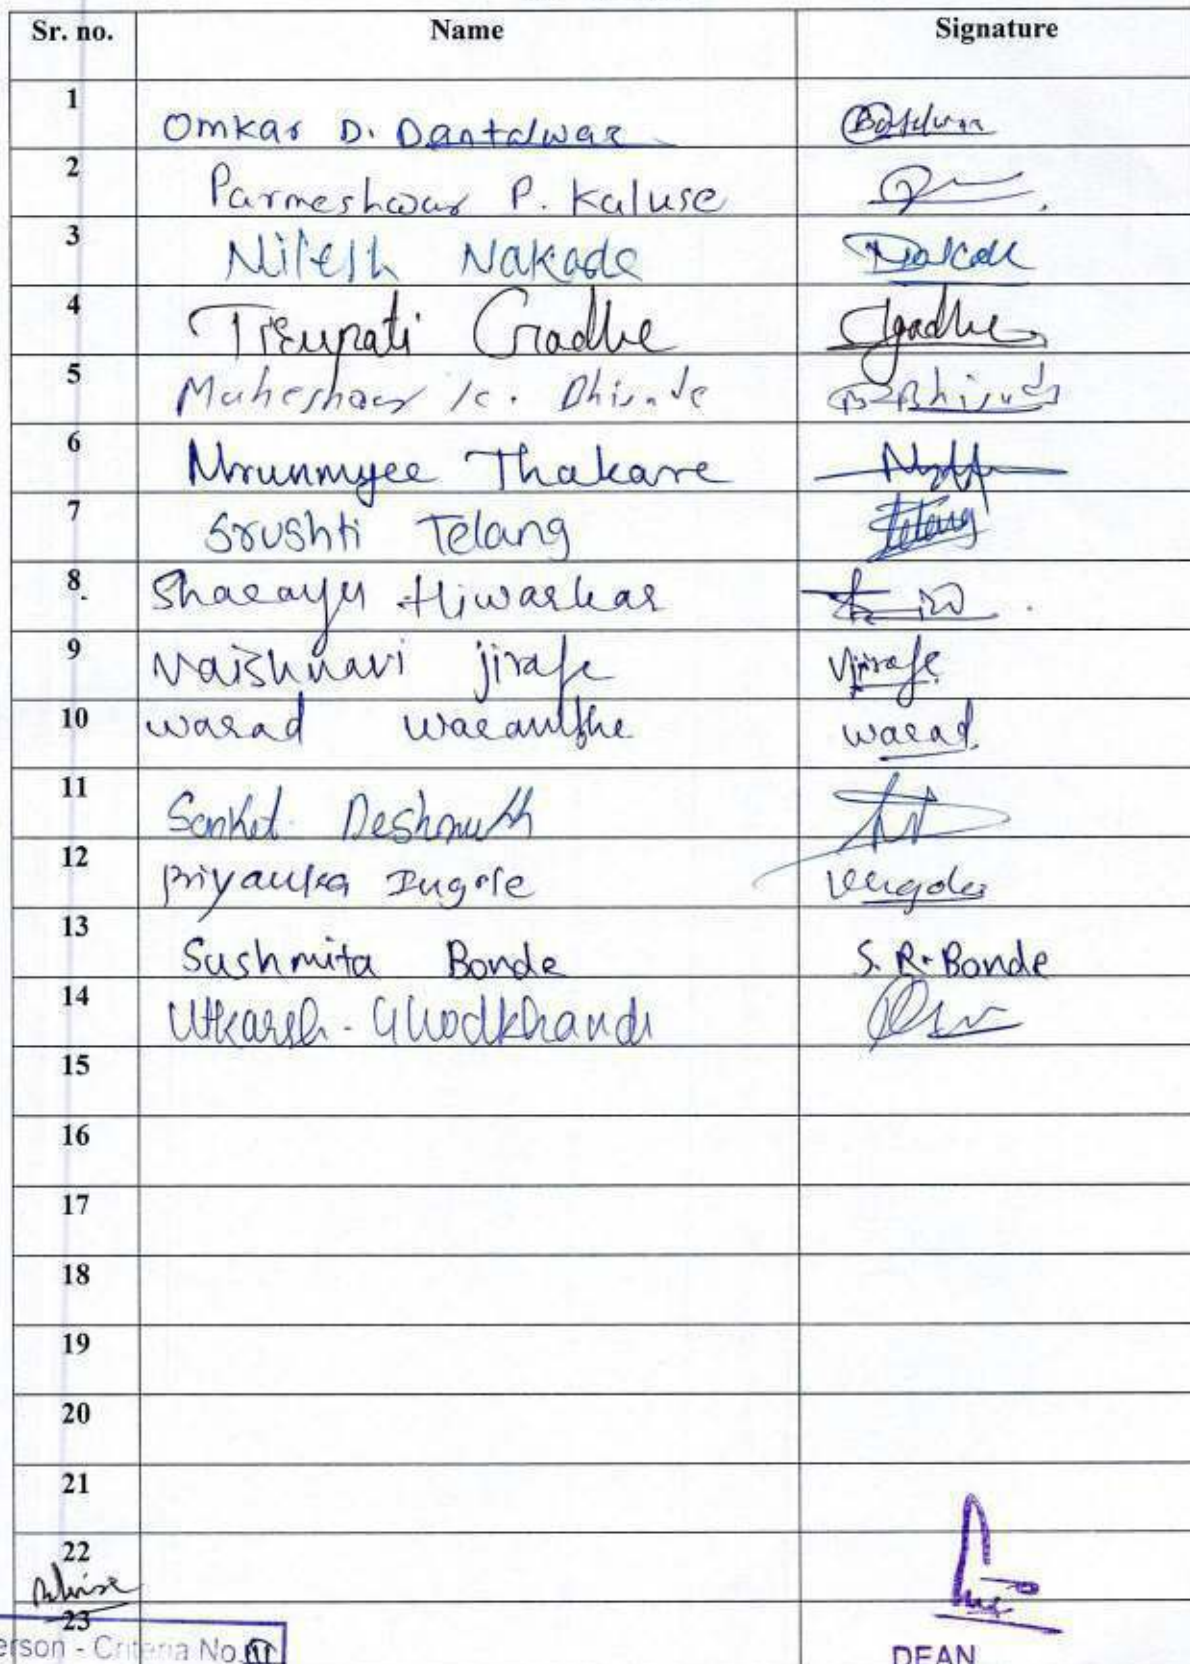 Sr. no. Name Signature
1 Omkar D. Dantalwar
2 Parmeshwar P. Kaluse
3 Nilesh Nakade Nakade
4 Tirupati Gadhe Gadhe
5 Maheshwar K. Bhisade
6 Mrunmyee Thakare
7 Srushti Telang Telang
8. Sharayu Hiwarkar
9 Vaishnavi jirafe Vjirafe
10 warad warankhe warad
11 Sanket Deshmukh
12 Priyanka Ingole
13 Sushmita Bonde S. R. Bonde
14 Utkarsh Ghodkhande
15
16
17
18
19
20
21
22
23
erson - Criteria No.
DEAN